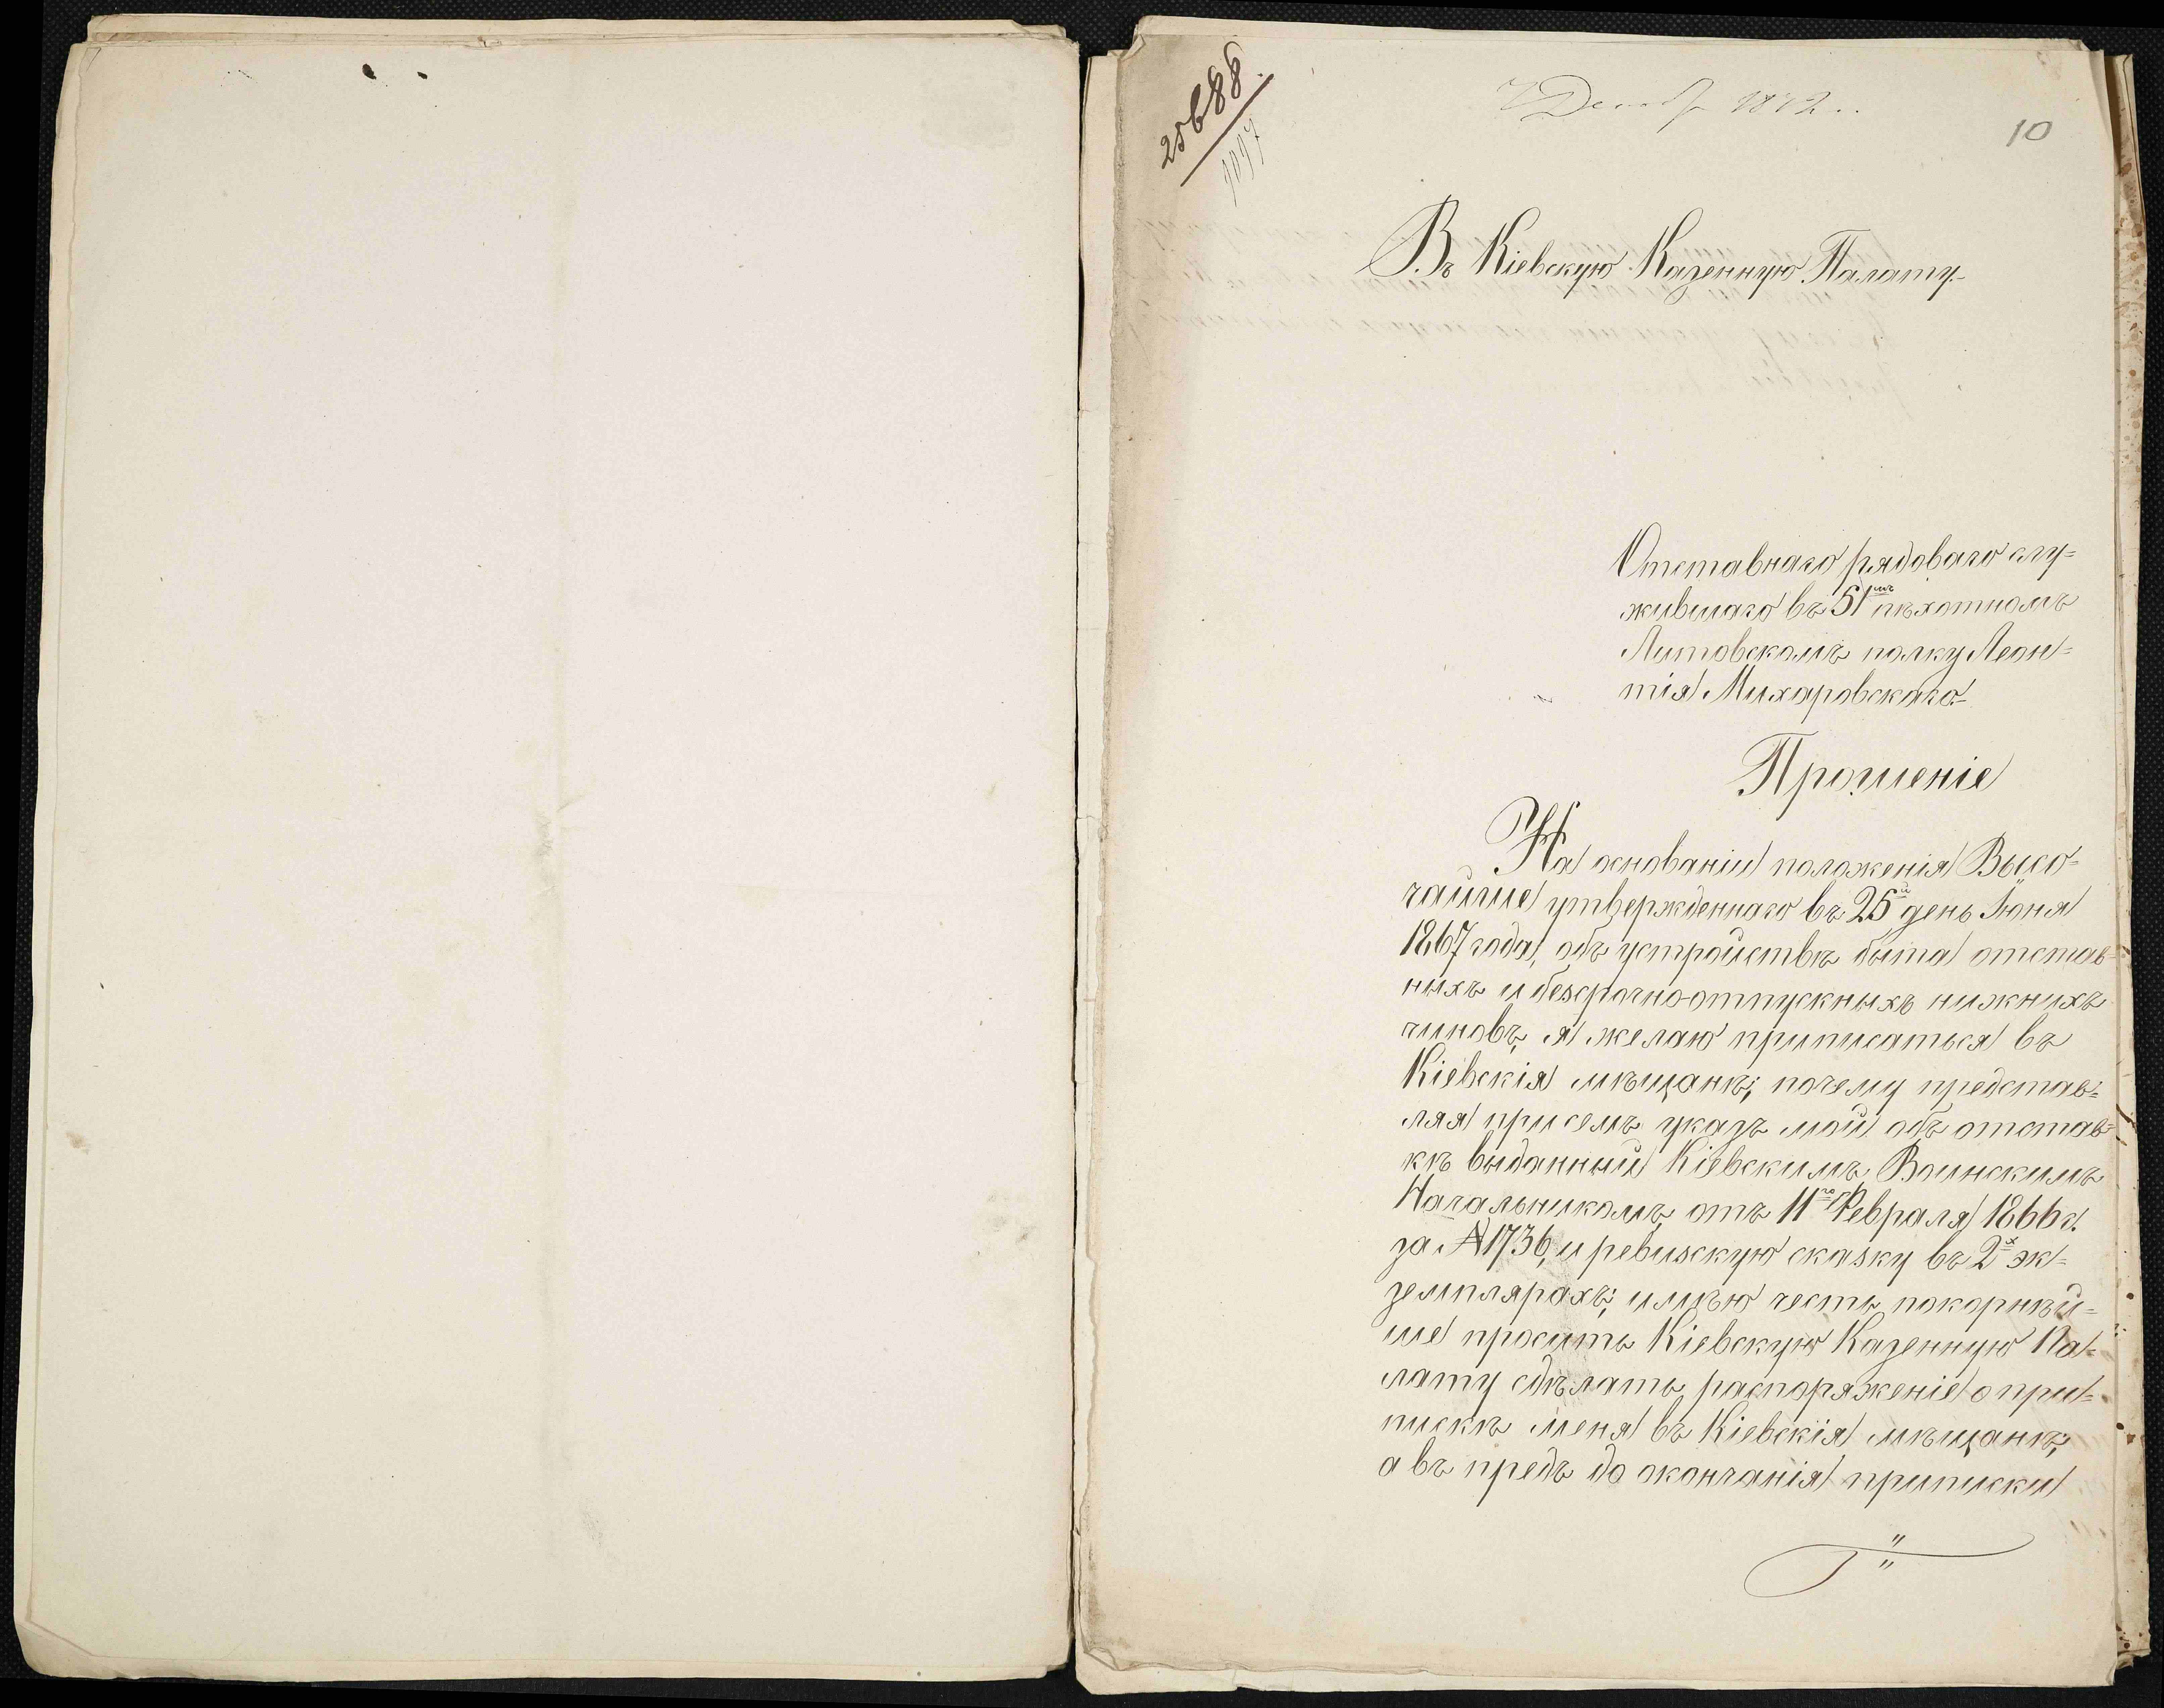 25688
7 Декабр 1872..
10
Въ Кіевскую Казенную Палату.
Отставнаго рядоваго слу=
жившаго въ 51мъ пѣхотномъ
Литовскомъ полку Леон=
тія Михаровскаго.
Прошеніе
На основаніи положенія Высо=
чайше утвержденнаго въ 25й день Іюня
1867 года, объ устройствѣ быта отстав=
ныхъ и безсрочно-отпускныхъ нижнихъ
чиновъ, я желаю приписаться въ
Кіевскія мѣщанѣ; почему представ=
ляя при семъ указъ мой объ отстав=
кѣ выданный Кіевскимъ Воинскимъ
Начальникомъ отъ 11го Февраля 1866 г.
за №1736, и ревизскую сказку въ 2х эк=
земплярахъ; имѣю честь покорнѣй=
ше просить Кіевскую Казенную Па=
лату сдѣлать распоряженіе о при=
пискѣ меня въ Кіевскія мѣщанѣ,
а въ предъ до окончанія приписки